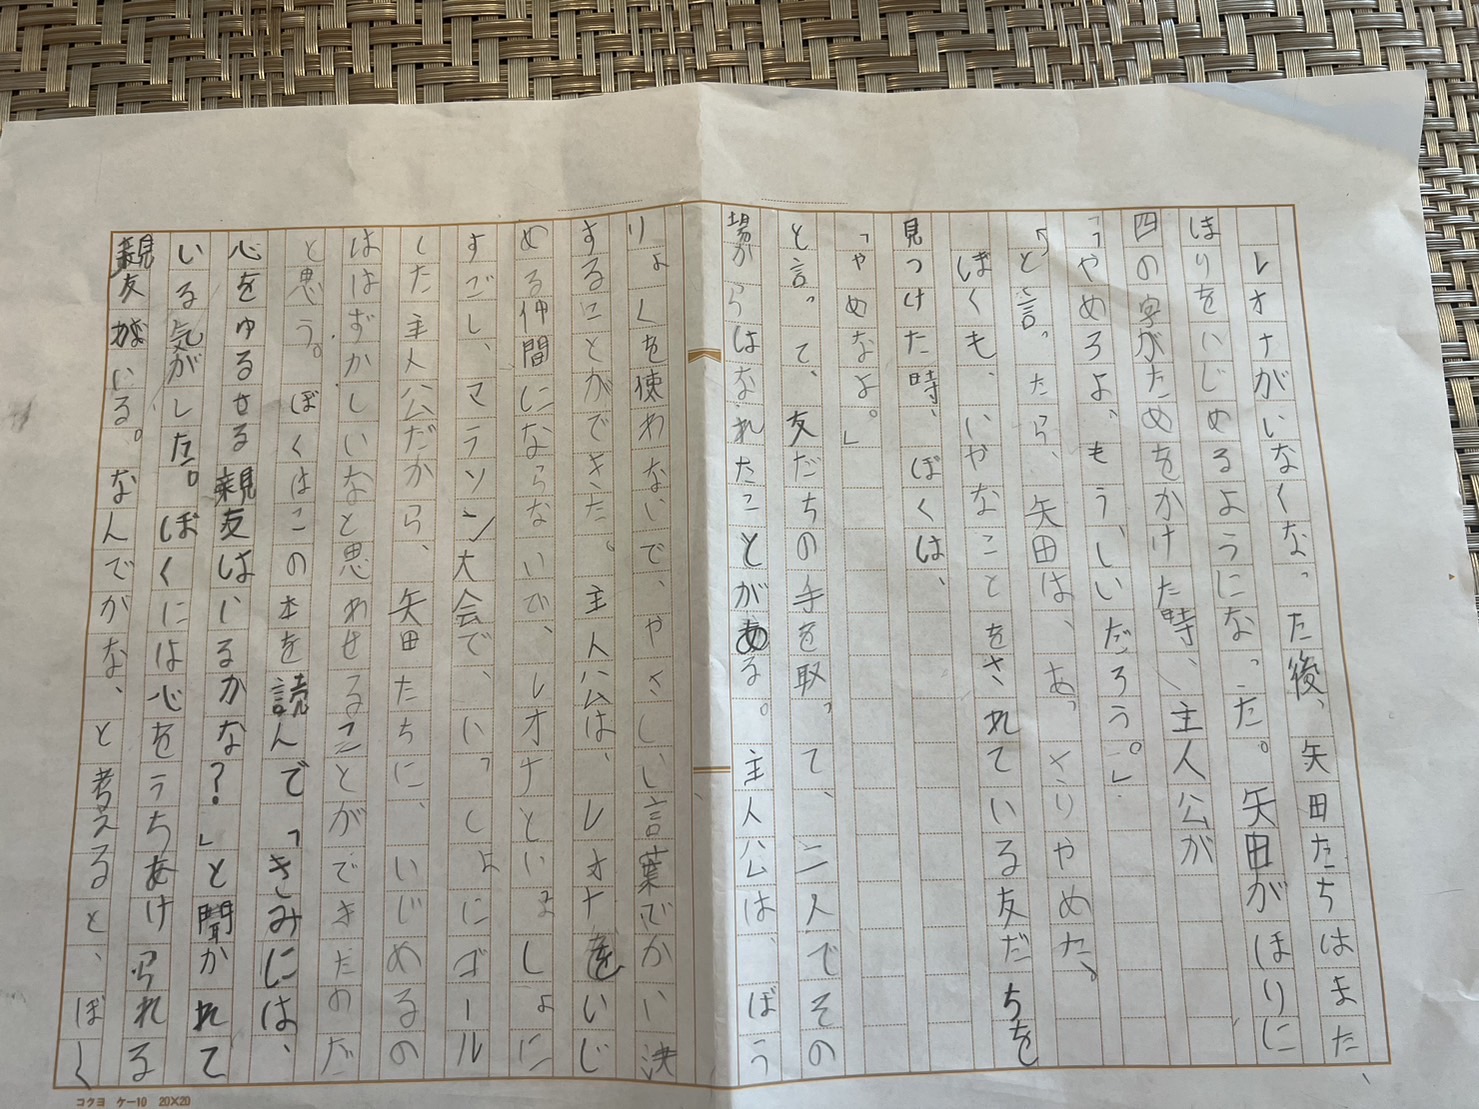 レオナがいなくなった後、矢田たちはまた
ほりをいじめるようになった。矢田がほりに
四の字がためをかけた時、主人公が
「やめろよ、もういいだろう。」
と言ったら、矢田は、あっさりやめた。
ぼくも、いやなことをされている友だちを
見つけた時、ぼくは、
「やめなよ。」
と言って、友だちの手を取って、二人でその
場からはなれたことがある。主人公は、ぼう
りょくを使わないで、やさしい言葉でかい決
することができた。主人公は、レオナをいじ
める仲間にならないで、レオナといっしょに
すごし、マラソン大会で、いっしょにゴール
した主人公だから、矢田たちに、いじめるの
ははずかしいなと思わせることができたのだ
と思う。ぼくはこの本を読んで「きみには、
心をゆるせる親友はいるかな?」と聞かれて
いる気がした。ぼくには心をうちあけられる
親友がいる。なんでかな、と考えると、ぼく
コクヨ ケー10 20×20